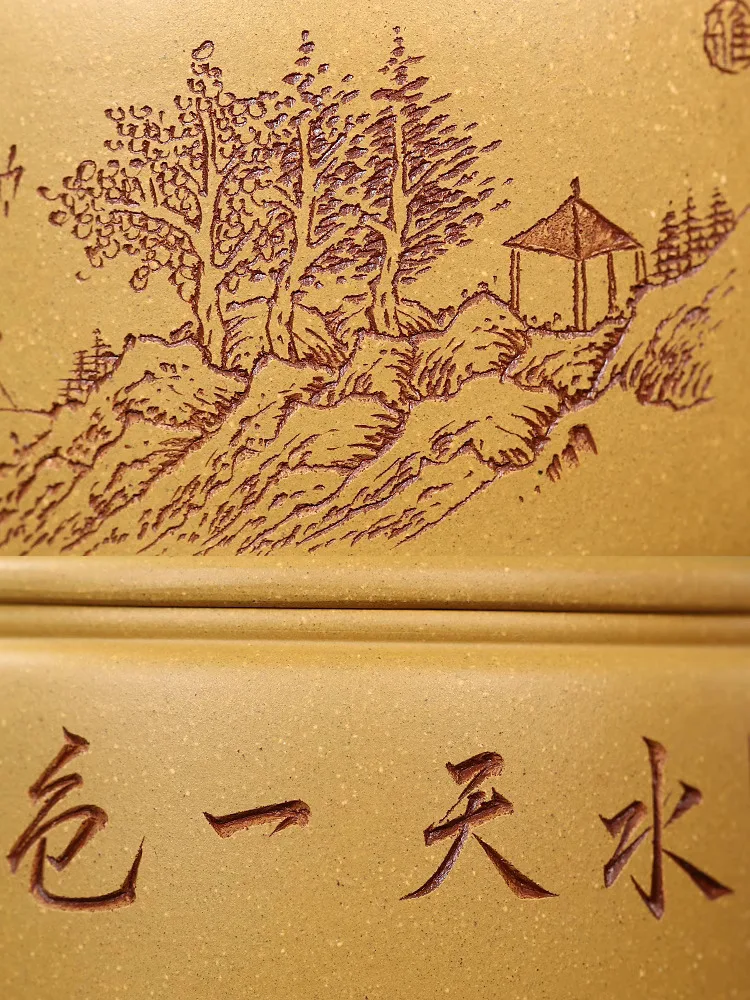 水天一色